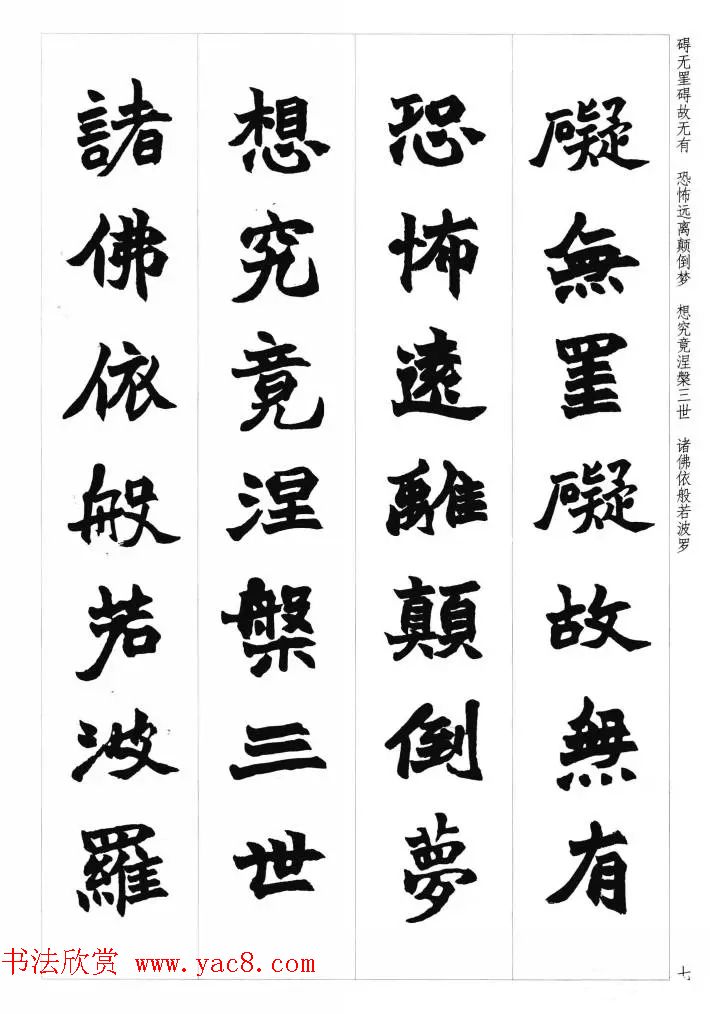 碍无罣碍故无有 恐怖远离颠倒梦 想究竟涅槃三世 诸佛依般若波罗
礙無罣礙故無有
恐怖遠離顛倒夢
想究竟涅槃三世
諸佛依般若波羅
七
书法欣赏 www.yac8.com